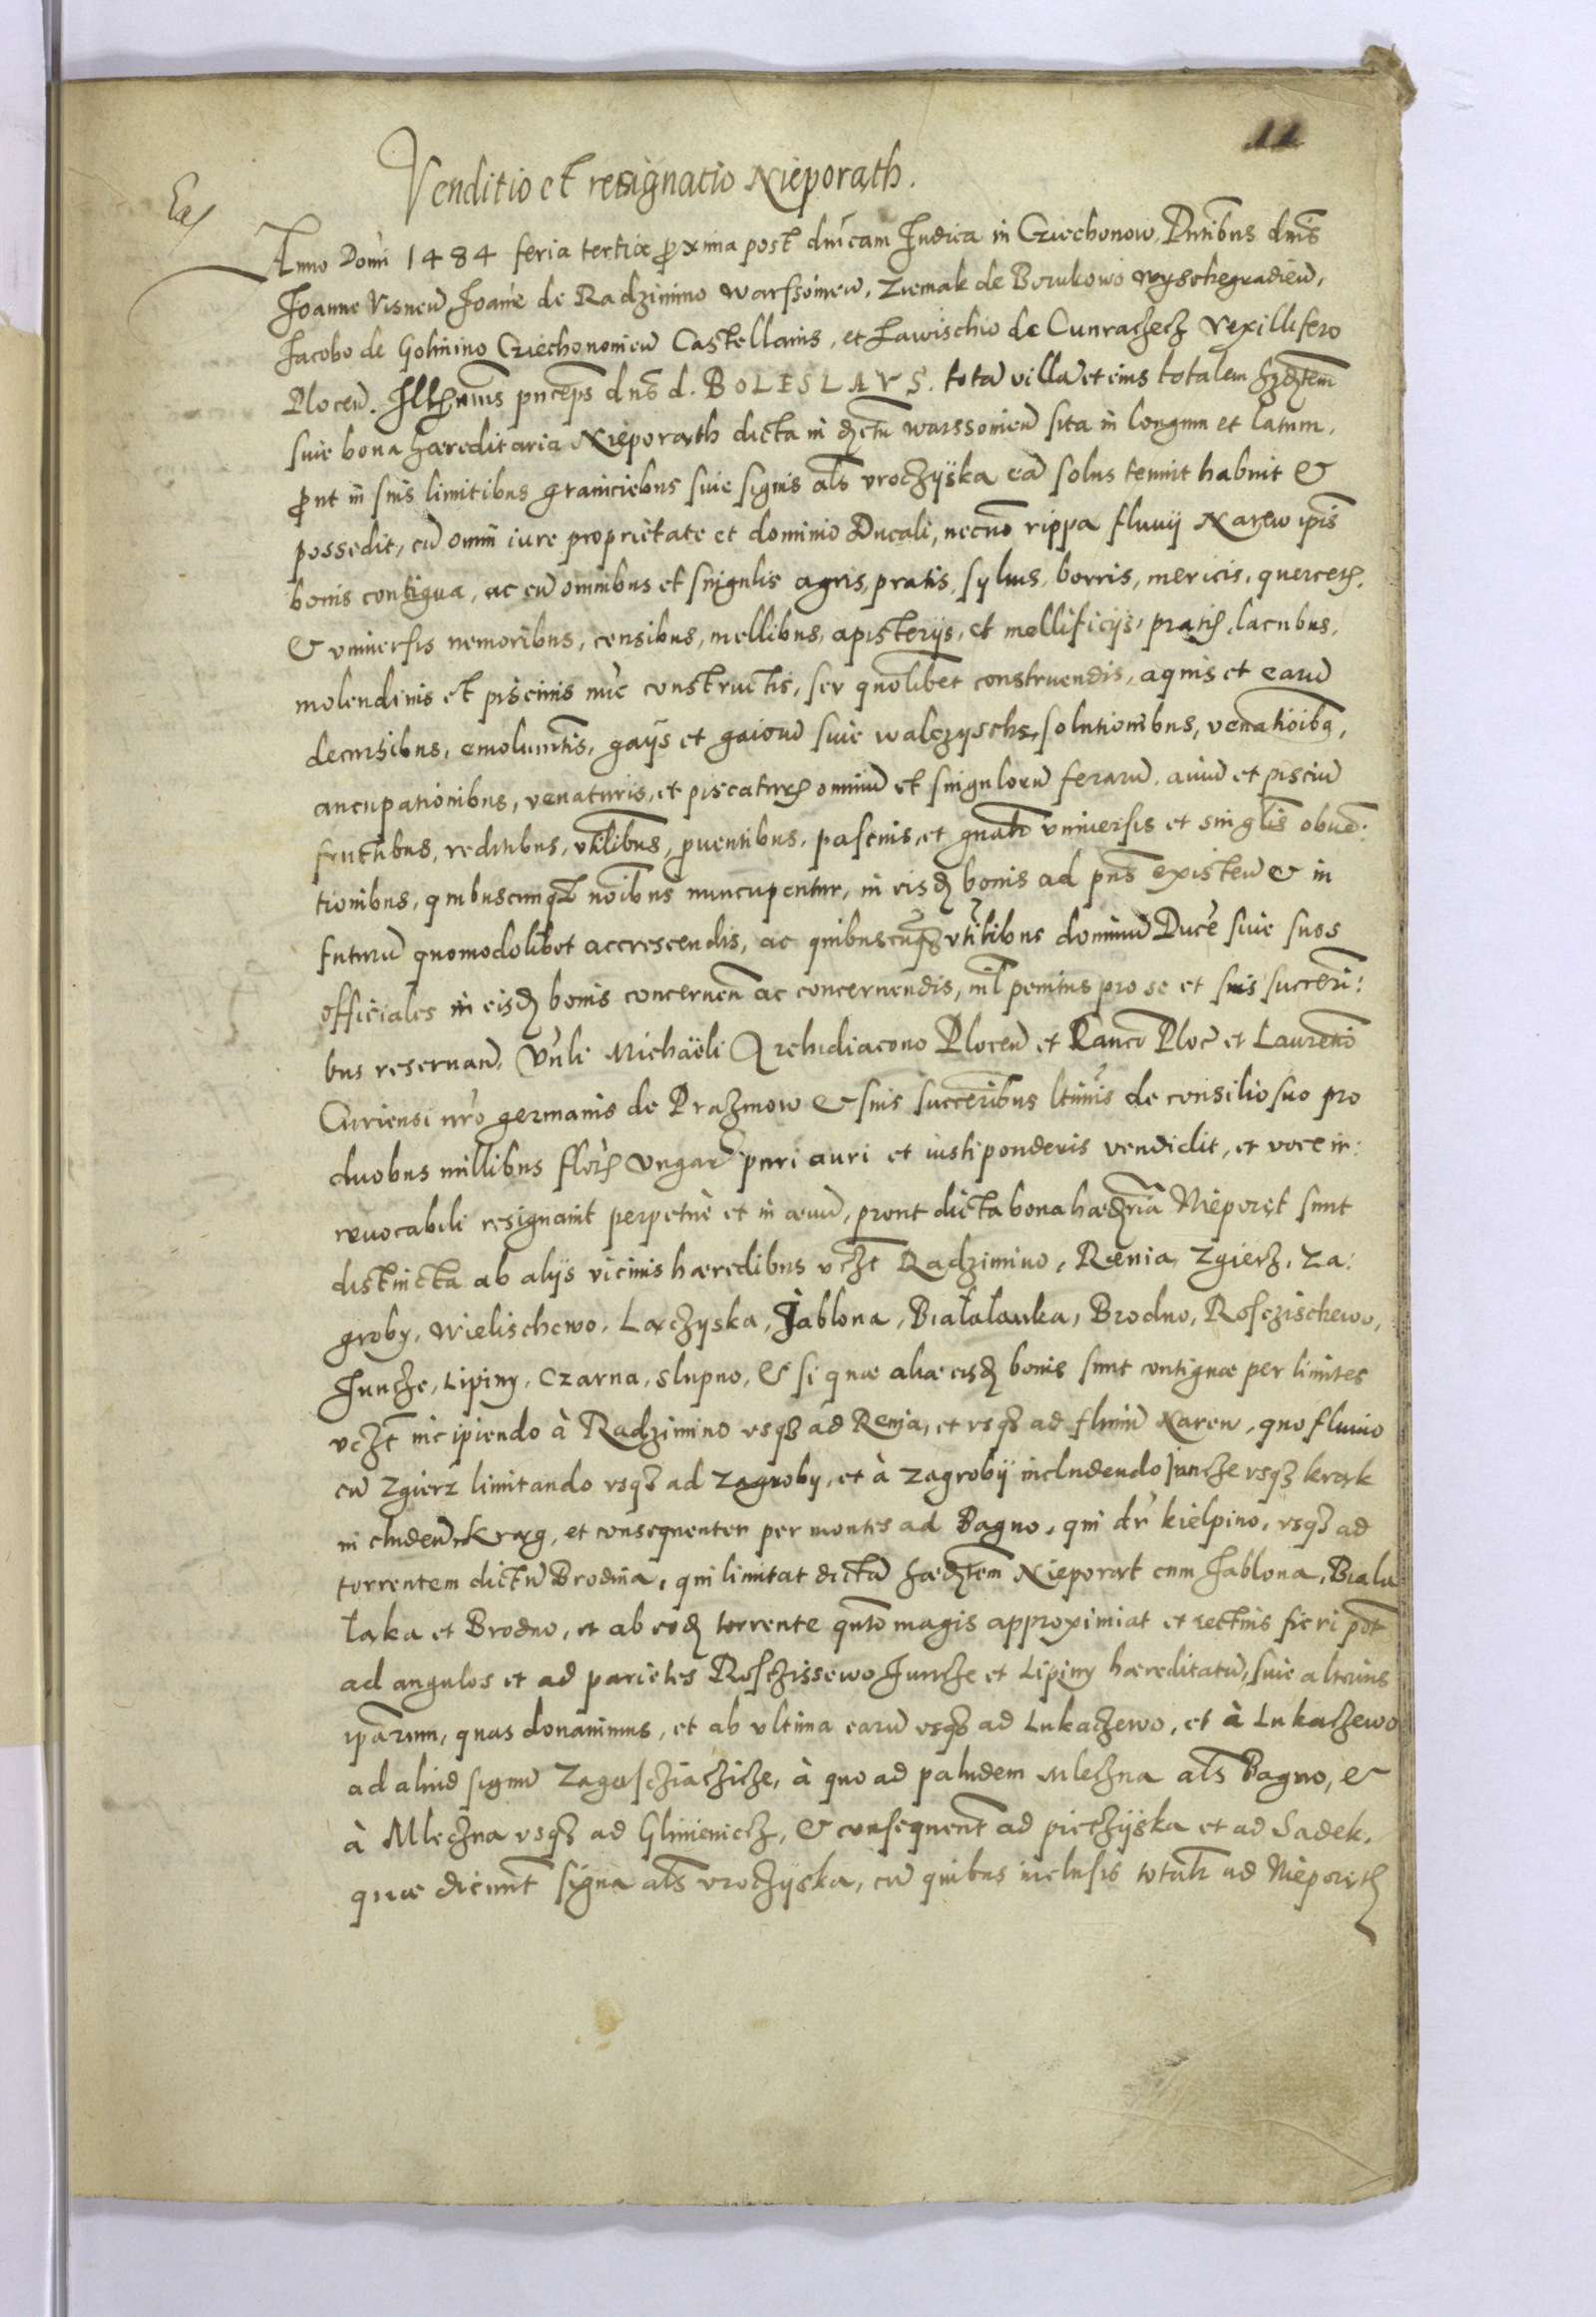 11
Venditio et resignatio Nieporąth.
Anno Domi 1484 feria tertia pxima post dnicam Iudica in Cziechonow, Pntibus dnis
Joanne Visnen Joane de Radzimino Warssouien, Ziemak de Borukowo Wyschegradien,
Jacobo de Golmino Cziechonouien Castellanis, et Lawischio de Cunraczecz Vexillifero
Plocen. princeps dns d. BOLESLAVS. tota villa et eius totalem
siue bona haereditaria Nieporąth dicta in Warssouien sita in longum et latum,
put in suis limitibus graniciebus siue signis als vroczyska ea solus tenuit habuit &
possedit, cu omni iure proprietate et dominio Ducali, necno rippa fluuij Narew ipis
bonis contigua, ac cu omnibus et singulis agris, pratis, syluis, borris, mericis, quercet.
& vniuersis nemoribus, censibus, mellibus, apisterijs, et mellificijs, pratis, lacubus,
molendinis et piscinis nuc constructis, seu quolibet construendis, aquis et earu
decursibus, emolumtis, gaijs et gaioru siue walczysche, solutionibus, venatioibq,
aucupationibus, venaturis, et piscaturis omniu et singuloru ferarum, auiu et pisciu
fructibus, reditibus, vtilibus, puentibus, pascuis, et gnalr vniuersis et singlis obue:
tionibus, quibuscunq noibus nuncupentur, in eisd bonis ad pns existen & in
futuru quomodolibet accrescendis, ac quibuscuq vtilibus dominu Duce siue suos
officiales in eisd bonis concernen ac concernendis, nil penitus pro se et suis succeri:
bus reseruan, Michaëli Archidiacono Plocen et Canco Ploc et Laurentio
Curiensi nro germanis de Prazmow & suis succeribus ltimis de consilio suo pro
duobus millibus flor Vngar puri auri et iusti ponderis vendidit, et voce ir:
reuocabili resignauit perpetuè et in aeuu, prout dicta bona haedria Nieporąt sunt
distincta ab alijs vicinis haeredibus vczt Radzimino, Renia, Zgierz, Za:
groby, Wielischewo, Lączyska, Jablona, Białałanka, Brodno, Rosczischewo,
Juncze, Lipiny, Czarna, Slupno, & si quae aliae eisd bonis sunt contiguae per limites
vczt incipiendo à Radzimino vsq ad Renia, et vsq ad fluuiu Narew, quo fluuio
cu Zgierz limitando vsq ad Zagroby, et à Zagroby includendo Juncze vsq krąk
includen krąg, et consequenter per montes ad Bagno, qui dr kielpino, vsq ad
torrentem dictu Brodnia, qui limitat dicta haedtem Nieporąt cum Jablona, Biala
łąka et Brodno, et ab eod torrente qnto magis approximiat et rectius fieri pot
ad angulos et ad parietes Rosczissewo Juncze et Lipiny haereditatu, siue alterius
iparum, quas donauimus, et ab vltima earu vsq ad Lukaczewo, et à Lukaczewo
ad aliud signu, à quo ad paludem Mleczna als Bagno, &
à Mleczna vsq ad Glinieniecz, & consequent ad pieczyska et ad Sadek,
quae dicunt signa als vroczyska, cu quibus inclusis totalr ad Nieporąth